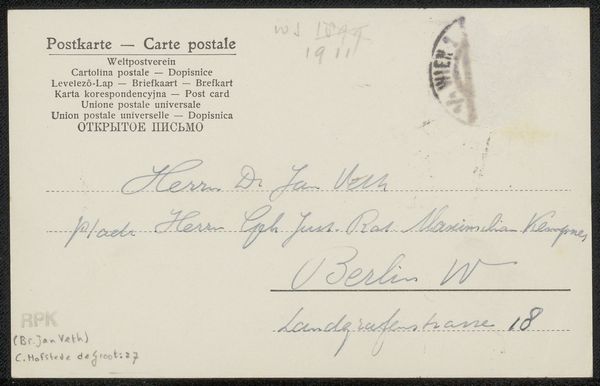 ws 1899
1911
Postkarte — Carte postale
Weltpostverein
Cartolina postale — Dopisnice
Levelezö-Lap — Briefkaart — Brefkort
Karta korespondencyjna — Post card
Unione postale universale
Union postale universelle — Dopisnica
ОТКРЫТОЕ ПИСЬМО
WIEN
Herrn Dr Jan Veth
Herrn Just. Rat Maximilian Kempner
Berlin W
Landgrafenstrasse 18
RPK
(Br. Jan Veth)
C. Hofstede de Groot: 27